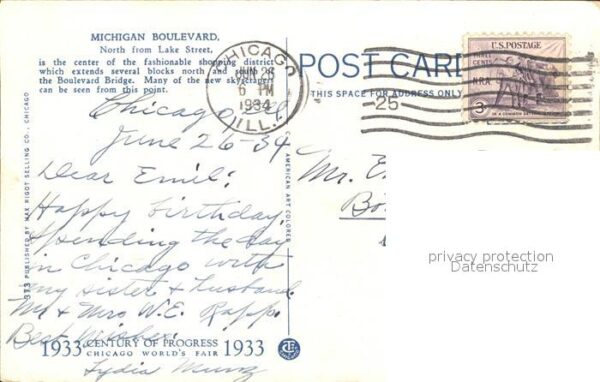 MICHIGAN BOULEVARD,
North from Lake Street,
is the center of the fashionable shopping district
which extends several blocks north and south of
the Boulevard Bridge. Many of the new skyscrapers
can be seen from this point.
CHICAGO
JUN 26
6 PM
1934
ILL.
POST CARD
THIS SPACE FOR ADDRESS ONLY
25
U.S. POSTAGE
THREE
CENTS
N.R.A.
3
IN A COMMON DETERMINATION
Chicago Ill
June 26-34
Dear Emil:
Happy birthday.
Spending the day
in Chicago with
my sister & husband
Mr & Mrs W.E. Rapp.
Best Wishes.
Lydia Munz
Mr. E
Bo
privacy protection
Datenschutz
373 PUBLISHED BY MAX RIGOT SELLING CO., CHICAGO
AMERICAN ART COLORED
1933 CENTURY OF PROGRESS 1933
CHICAGO WORLD'S FAIR